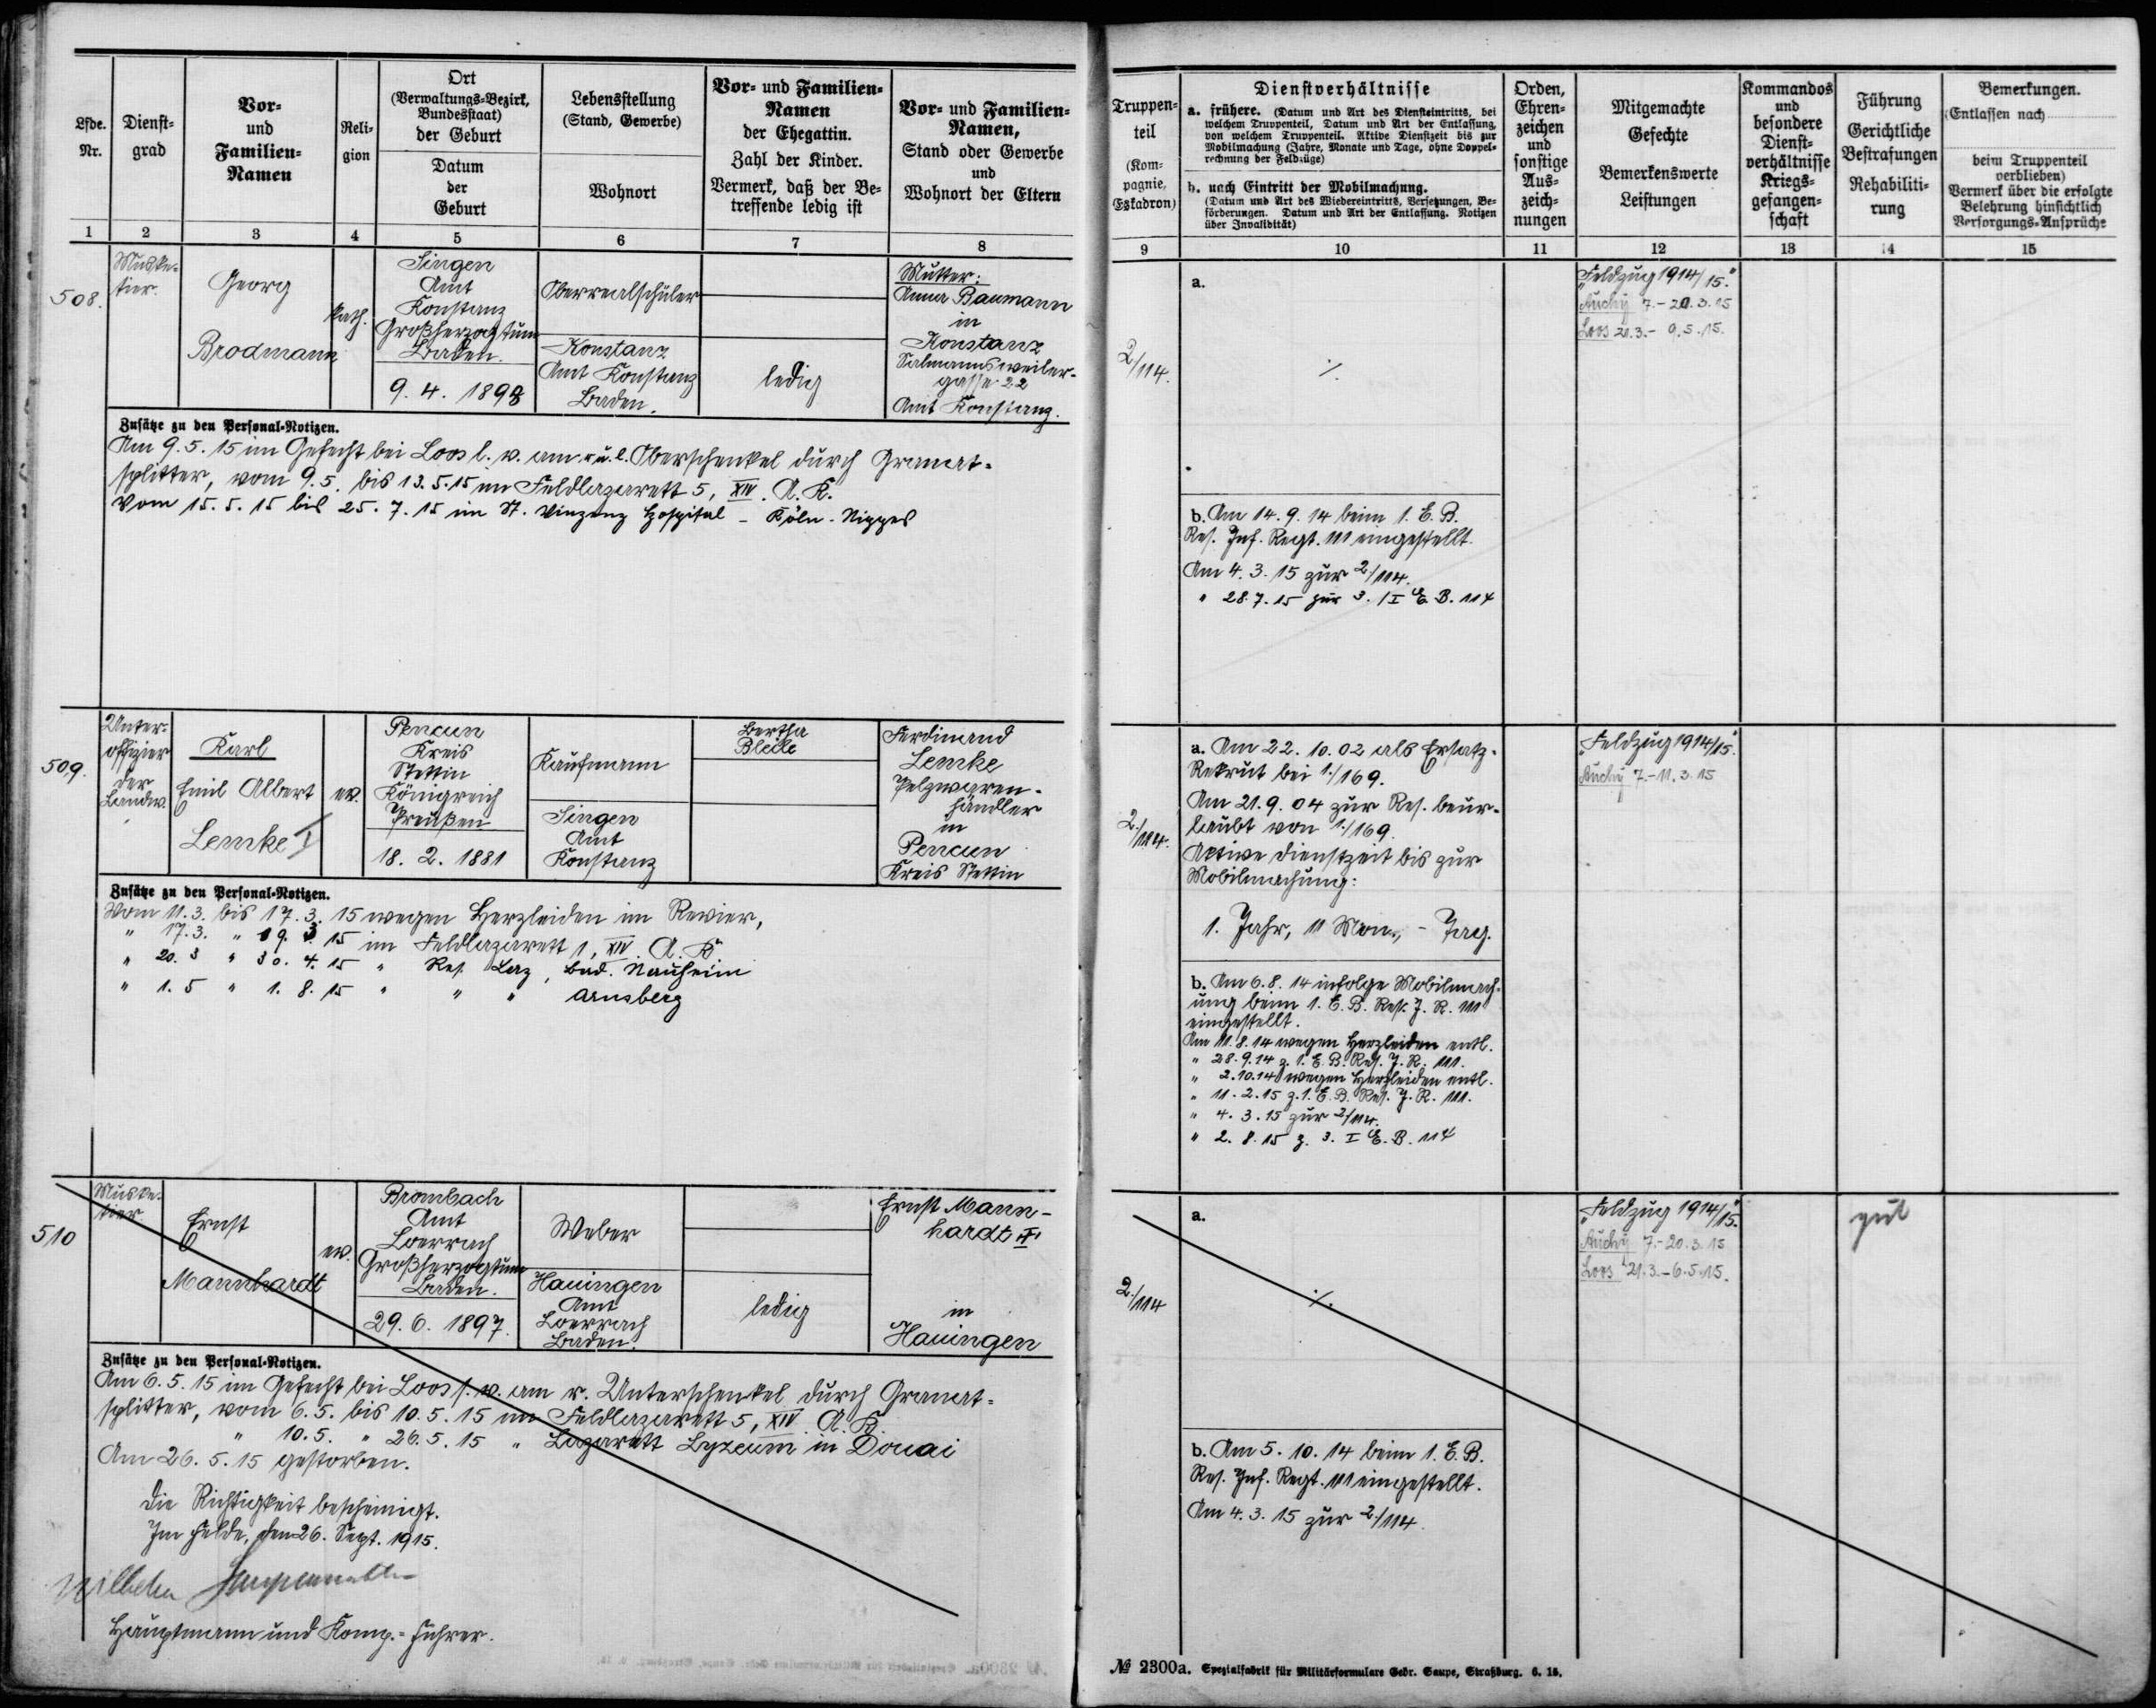 Lfde.
Nr.
Dienst-
grad
Vor-
und
Familien-
Namen
Reli-
gion
Ort
(Verwaltungs-Bezirk,
Bundesstaat)
der Geburt
Datum
der
Geburt
Lebensstellung
(Stand, Gewerbe)
Wohnort
Vor- und Familien-
Namen
der Ehegattin.
Zahl der Kinder.
Vermerk, daß der Be-
treffende ledig ist
Vor- und Familien-
Namen,
Stand oder Gewerbe
und
Wohnort der Eltern
1
2
3
4
5
6
7
8
508.
Muske-
tier.
Georg
Brodmann
kath.
Singen
Amt
Konstanz
Großherzogtum
Baden.
9. 4. 1898
Oberrealschüler
Konstanz
Amt Konstanz
Baden.
ledig
Mutter:
Anna Baumann
in
Konstanz
Salmannsweiler-
gasse 22
Amt Konstanz.
Zusätze zu den Personal-Notizen.
Am 9. 5. 15 im Gefecht bei Loos l. v. am r. u. l. Oberschenkel durch Granat-
splitter, vom 9. 5. bis 13. 5. 15 im Feldlazarett 5, XIV. A. K.
Vom 15. 5. 15 bis 25. 7. 15 im St. Vinzenz Hospital - Köln - Nippes
509.
Unter-
offizier
der
Landw.
Karl
Emil Albert
Lemke I
ev.
Pencun
Kreis
Stettin
Königreich
Preußen
18. 2. 1881
Kaufmann
Singen
Amt
Konstanz
Bertha
Bleile
Ferdinand
Lemke
Pelzwaren-
händler
in
Pencun
Kreis Stettin
Zusätze zu den Personal-Notizen.
Vom 11. 3. bis 17. 3. 15 wegen Herzleiden im Revier,
" 17. 3. " 19. 3. 15 im Feldlazarett 1, XIV. A. K.
" 20. 3 " 30. 4. 15 " Res. Laz, Bad. Nauheim
" 1. 5 " 1. 8. 15 " " " Arnsberg
510
Muske-
tier
Ernst
Mannhardt
ev.
Brombach
Amt
Loerrach
Großherzogtum
Baden.
29. 6. 1897.
Weber
Hauingen
Amt
Loerrach
Baden.
ledig
Ernst Mann-
hardt
in
Hauingen
Zusätze zu den Personal-Notizen.
Am 6. 5. 15 im Gefecht bei Loos s. v. am r. Unterschenkel durch Granat-
splitter, vom 6. 5. bis 10. 5. 15 im Feldlazarett 5, XIV. A. K.
" 10. 5. " 26. 5. 15 " Lazarett Lyzeum in Douai
Am 26. 5. 15 gestorben.
Die Richtigkeit bescheinigt.
Im Felde, den 26. Sept. 1915.
Wilhelm
Hauptmann und Komp.-Führer.
Truppen-
teil
(Kom-
pagnie,
Eskadron)
Dienstverhältnisse
a. frühere. (Datum und Art des Diensteintritts, bei
welchem Truppenteil, Datum und Art der Entlassung,
von welchem Truppenteil. Aktive Dienstzeit bis zur
Mobilmachung (Jahre, Monate und Tage, ohne Doppel-
rechnung der Feldzüge)
b. nach Eintritt der Mobilmachung.
(Datum und Art des Wiedereintritts, Versetzungen, Be-
förderungen. Datum und Art der Entlassung. Notizen
über Invalidität)
Orden,
Ehren-
zeichen
und
sonstige
Aus-
zeich-
nungen
Mitgemachte
Gefechte
Bemerkenswerte
Leistungen
Kommandos
und
besondere
Dienst-
verhältnisse
Kriegs-
gefangen-
schaft
Führung
Gerichtliche
Bestrafungen
Rehabiliti-
rung
Bemerkungen.
(Entlassen nach
beim Truppenteil
verblieben)
Vermerk über die erfolgte
Belehrung hinsichtlich
Versorgungs-Ansprüche
9
10
11
12
13
14
15
2/114.
a.
./.
b. Am 14. 9. 14 beim 1. E. B.
Res. Inf. Regt. 111 eingestellt.
Am 4. 3. 15 zur 2/114.
" 28. 7. 15 zur 3. / I E. B. 114
„Feldzug 1914/15."
Auchy 7.-20.3.15
Loos 21.3.- 9.5.15.
2./114.
a. Am 22. 10. 02 als Ersatz-
Rekrut bei 1./169.
Am 21. 9. 04 zur Res. beur-
laubt von 1./169.
Aktive Dienstzeit bis zur
Mobilmachung:
1. Jahr, 11 Mon., - Tag.
b. Am 6. 8. 14 infolge Mobilmach-
ung beim 1. E. B. Res. J. R. 111
eingestellt.
Am 11. 8. 14 wegen Herzleiden entl.
" 28. 9. 14 z. 1. E. B. Res. J. R. 111.
" 2. 10. 14 wegen Herzleiden entl.
" 11. 2. 15 z. 1. E. B. Res. J. R. 111.
" 4. 3. 15 zur 2/114.
" 2. 8. 15 z. 3. I E. B. 114
„Feldzug 1914/15."
Auchy 7.-11.3.15
2./114
a.
./.
b. Am 5. 10. 14 beim 1. E. B.
Res. Inf. Regt. 111 eingestellt.
Am 4. 3. 15 zur 2/114.
„Feldzug 1914/15."
Auchy 7.-20.3.15
Loos 21.3.-6.5.15.
gut
№ 2300a. Spezialfabrik für Militärformulare Gebr. Gaupe, Straßburg. 6. 15.